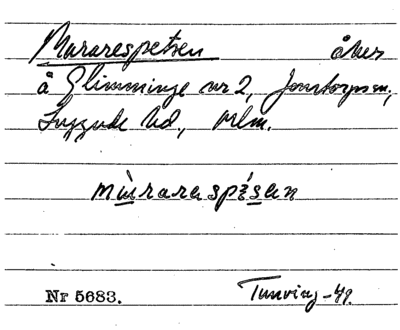 Murarespetsen åker
å Glimminge nr 2, Jonstorps sn,
Luggude hd, Mlm.
mu̱rarespεtsen
Nr 5683. Tunving -49.